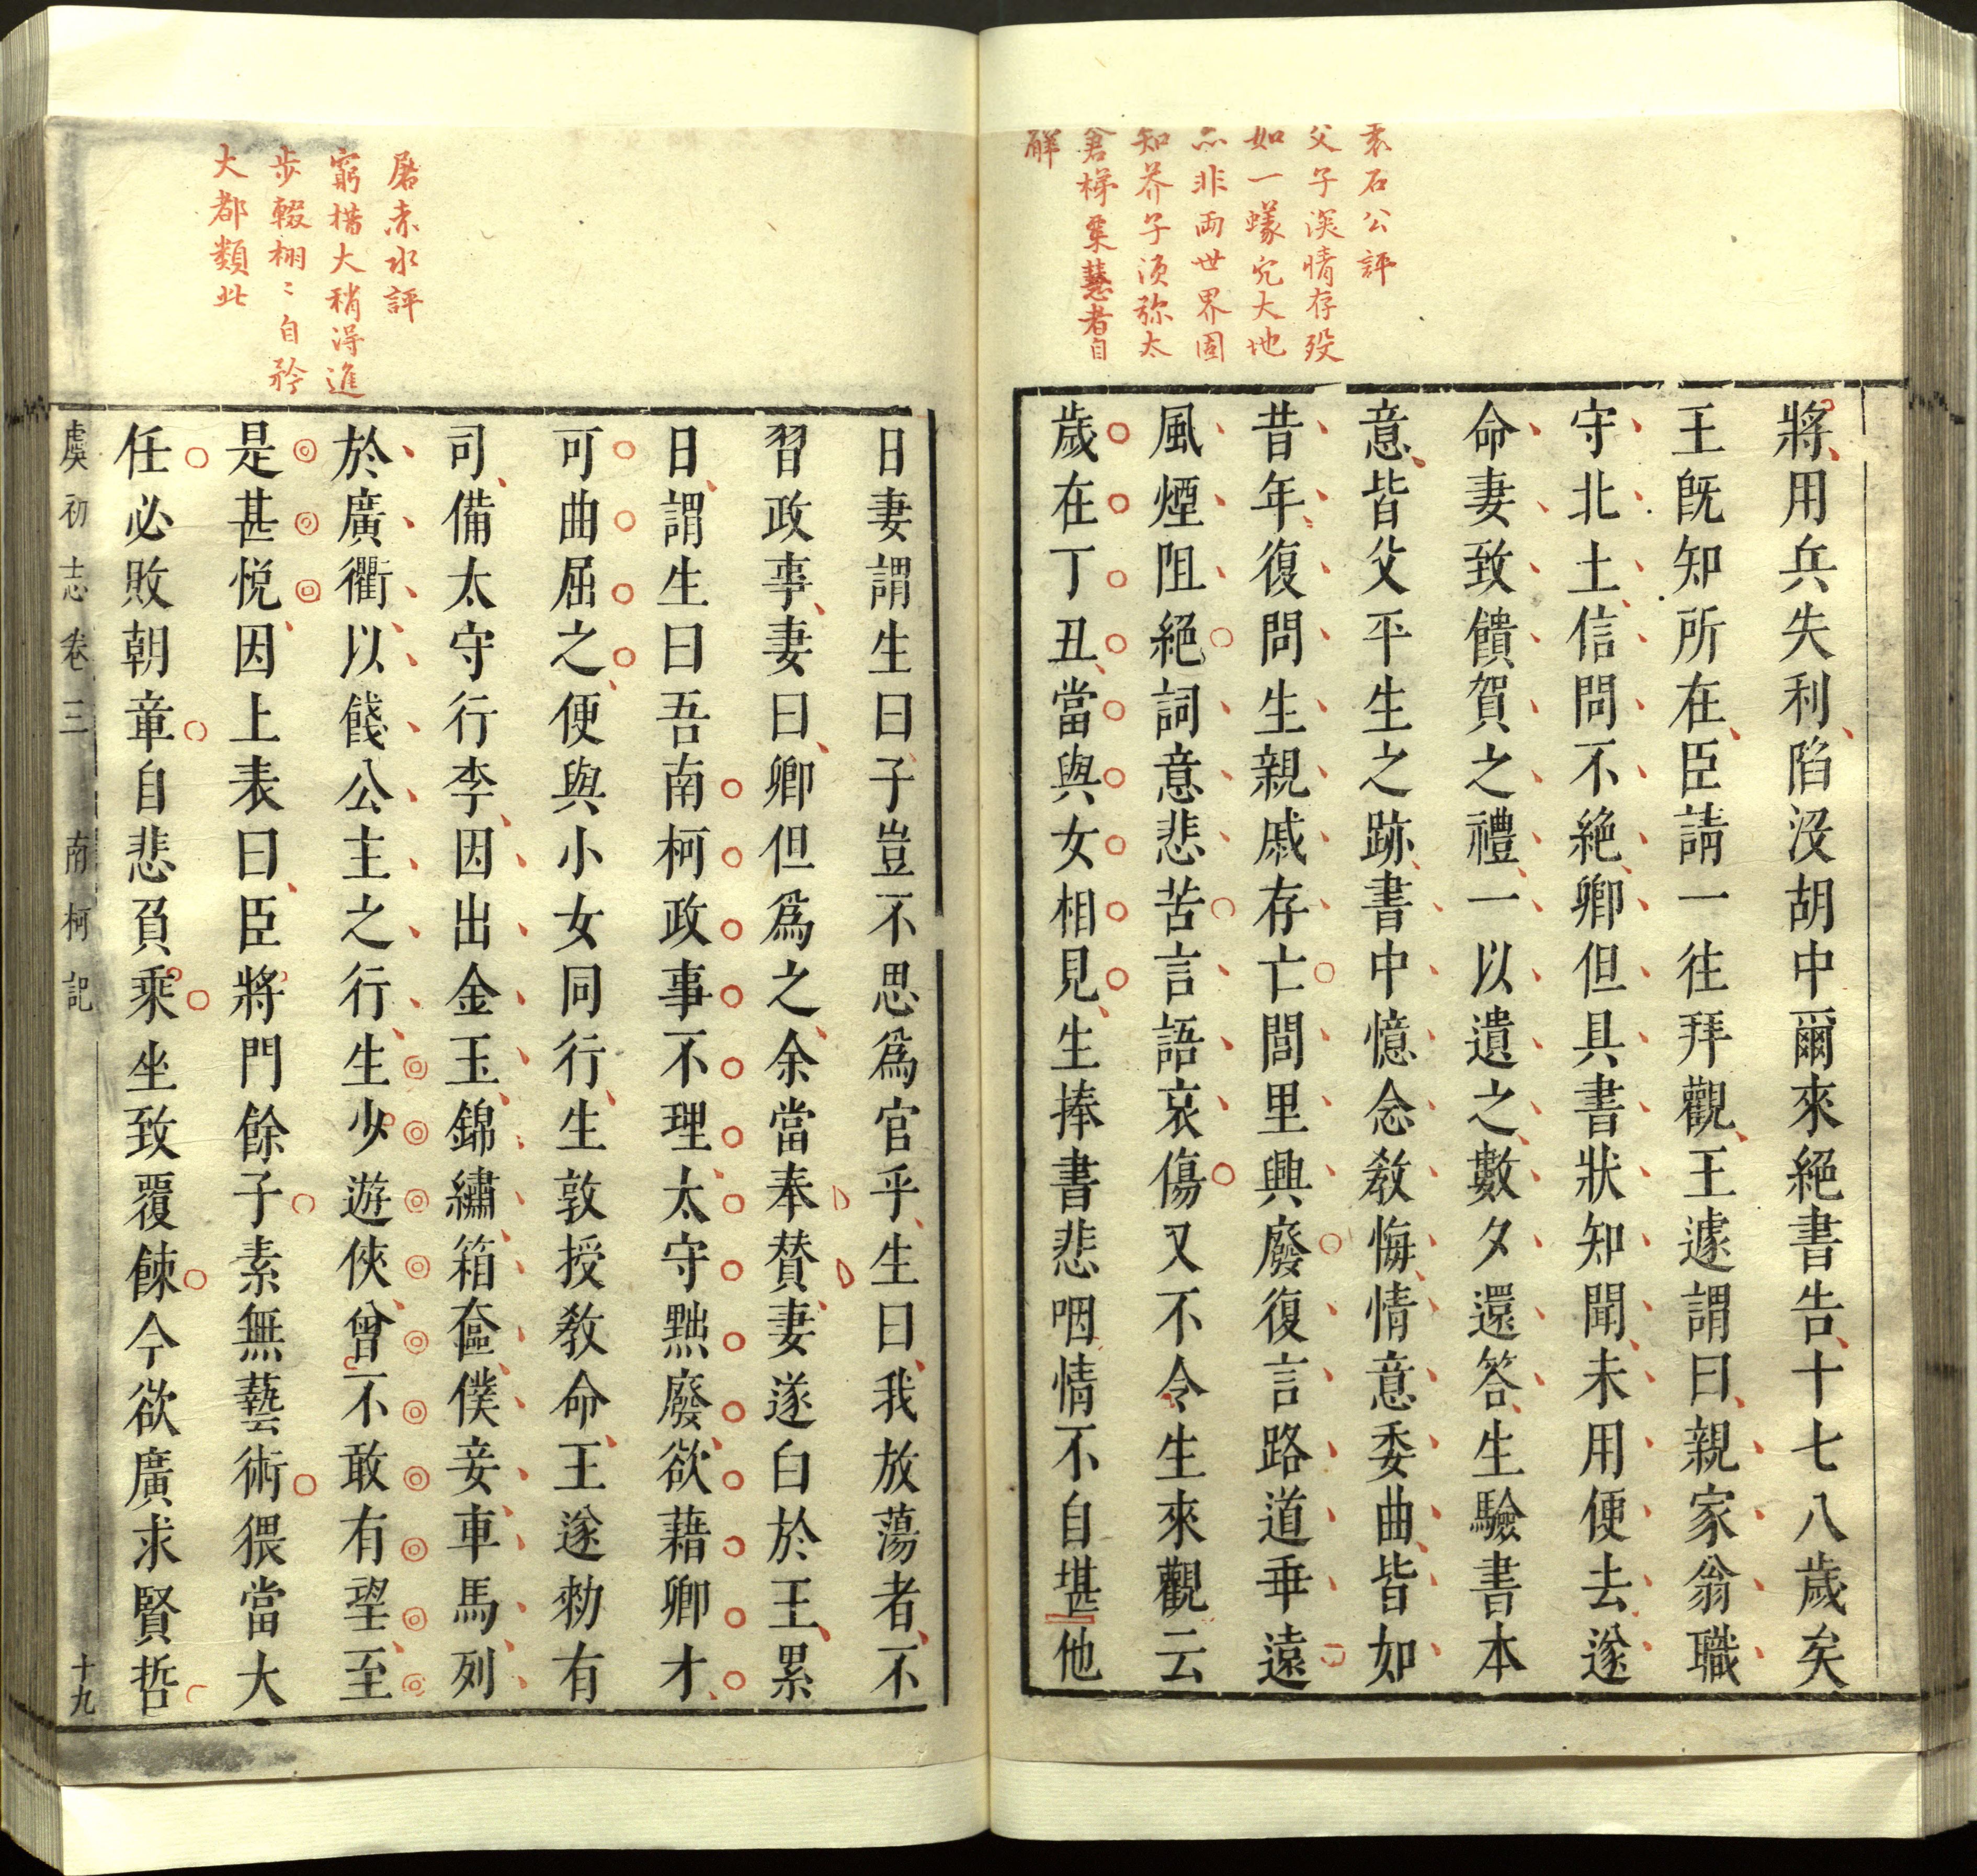 袁石公評
父子深情存歿
如一蟻穴大地
亦非兩世界固
知芥子須弥太
倉稊粟慧者自
解
將用兵失利陷沒胡中爾來絕書告十七八歲矣
王旣知所在臣請一往拜觀王遽謂曰親家翁職
守北土信問不絕卿但具書狀知聞未用便去遂
命妻致饋賀之禮一以遺之數夕還答生驗書本
意皆父平生之跡書中憶念敎悔情意委曲皆如
昔年復問生親戚存亡閭里興廢復言路道乖遠
風煙阻絕詞意悲苦言語哀傷又不令生來觀云
歲在丁丑當與女相見生捧書悲咽情不自堪他
屠赤水評
窮措大稍得進
步輟栩〻自矜
大都類此
日妻謂生曰子豈不思爲官乎生曰我放蕩者不
習政事妻曰卿但爲之余當奉賛妻遂白於王累
日謂生曰吾南柯政事不理太守黜廢欲藉卿才
可曲屈之便與小女同行生敦授敎命王遂勑有
司備太守行李因出金玉錦繡箱奩僕妾車馬列
於廣衢以餞公主之行生少遊俠曾不敢有望至
是甚悅因上表曰臣將門餘子素無藝術猥當大
任必敗朝章自悲負乘坐致覆餗今欲廣求賢哲
虞初志卷三 南柯記 十九